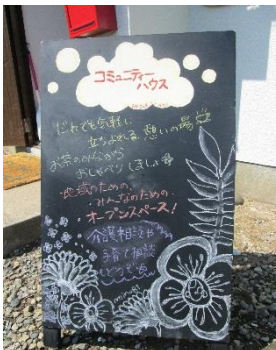 コミュニティー
ハウス
だれでも気軽に
立ちよれる 憩いの場
お茶のみながら
おしゃべりしましょ
地域のための、
みんなのための
オープンスペース!
介護相談
子育て相談